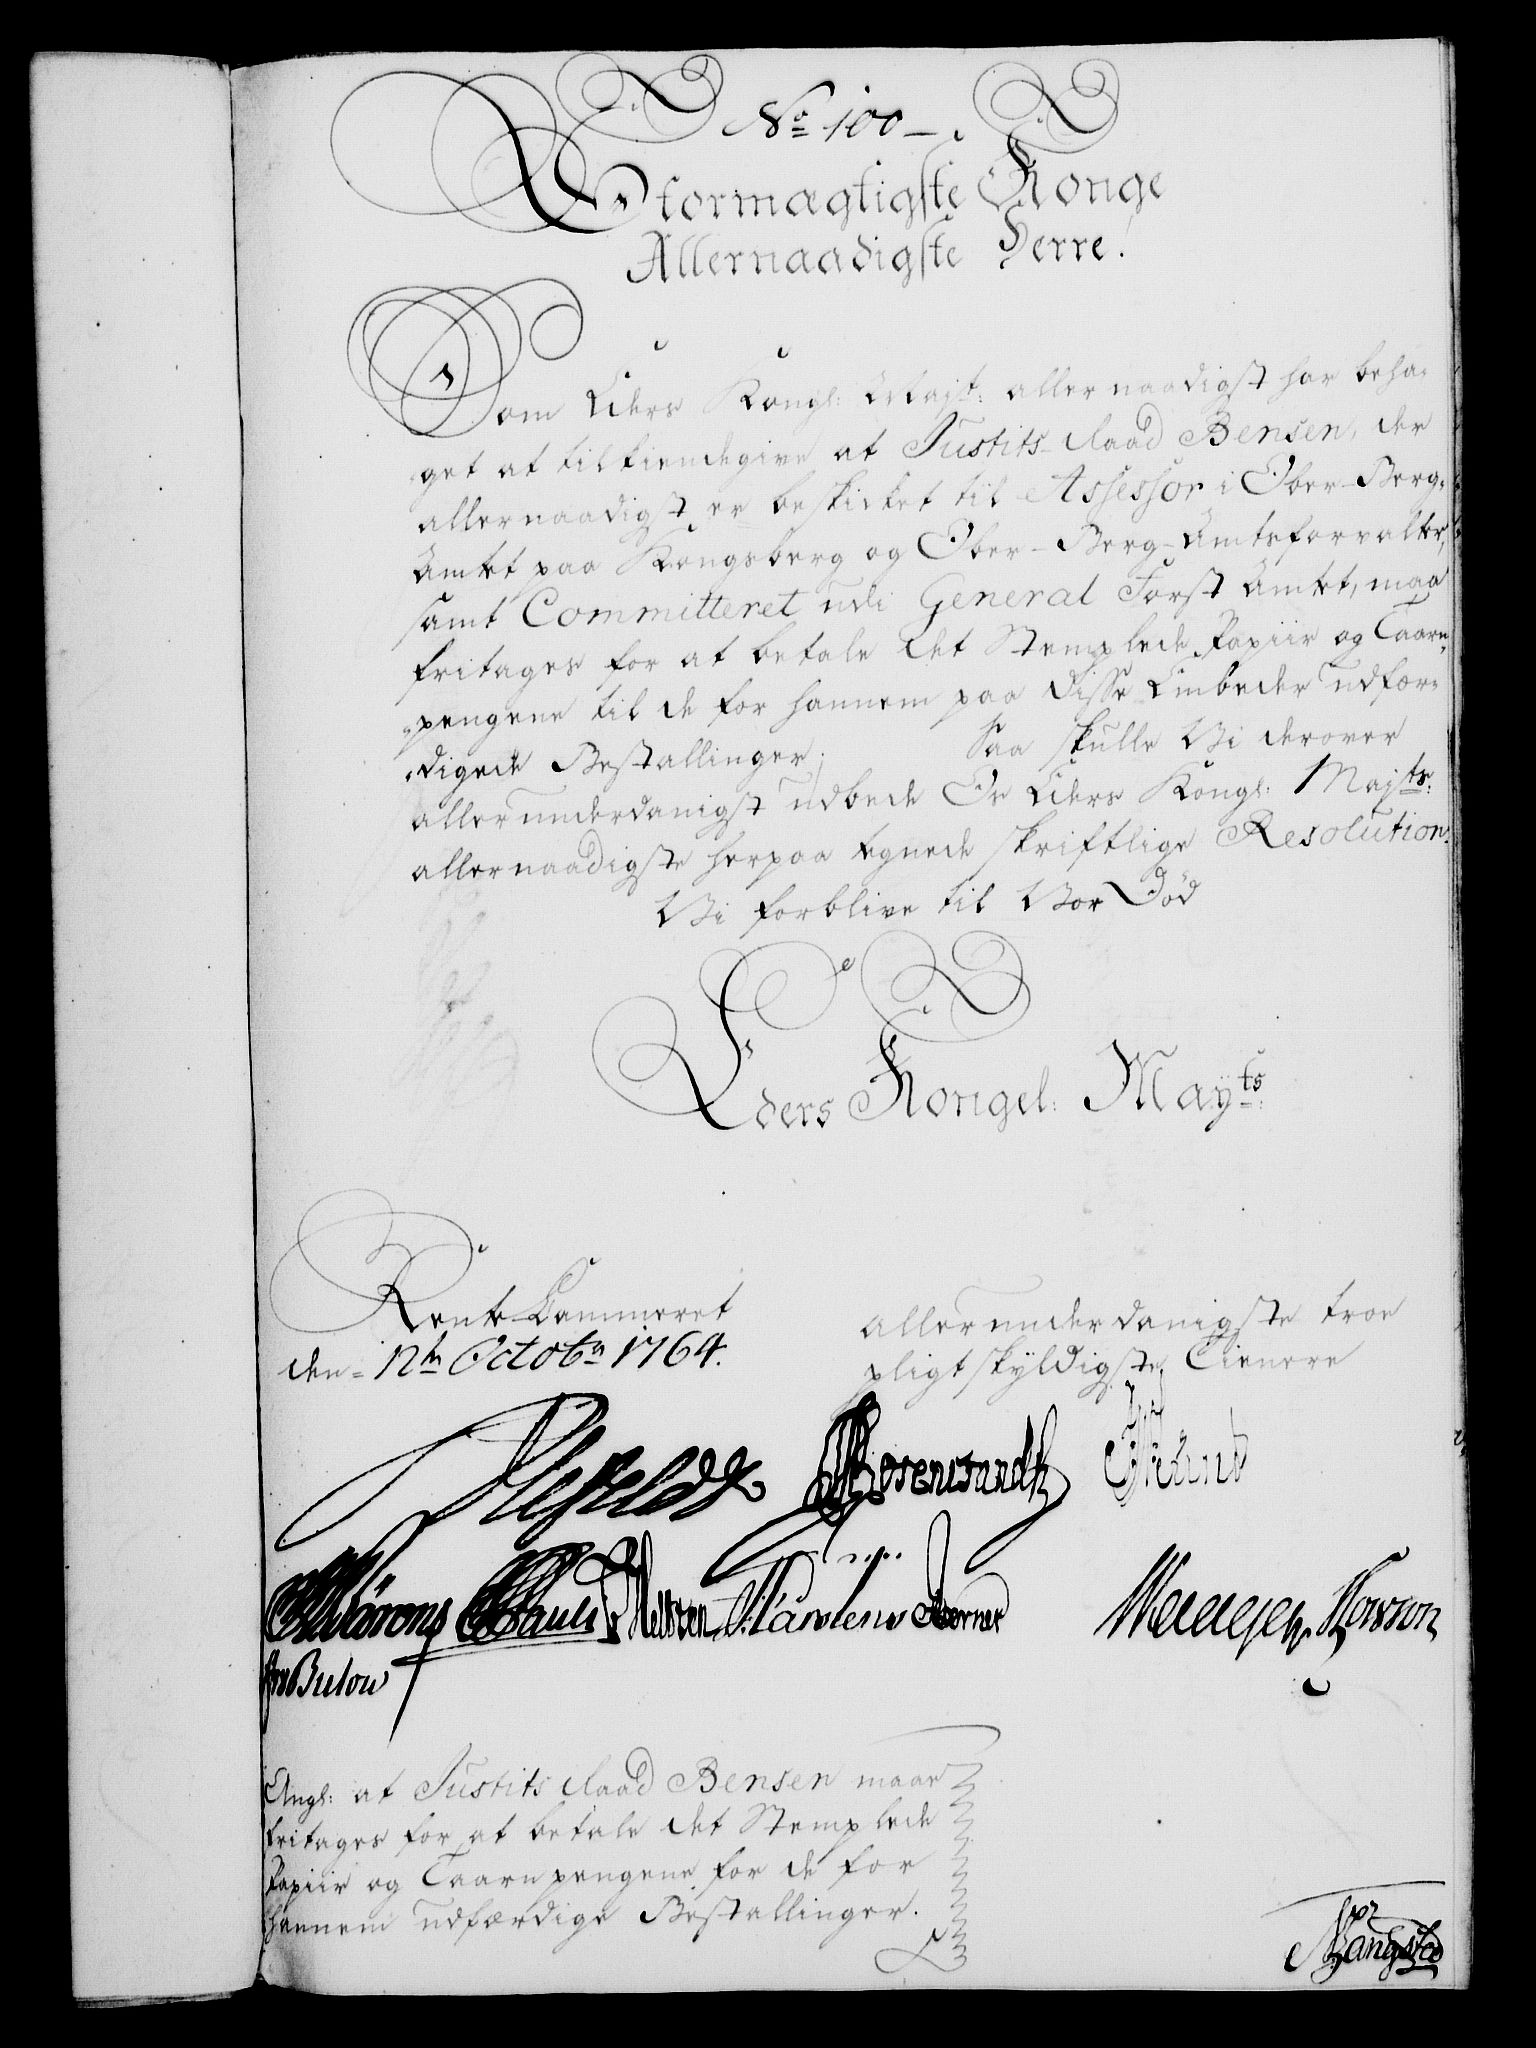 No 100.
Stormægtigste Konge
Allernaadigste Herre!
Som Eders Kongl: Mayt: allernaadigst har beha-
get at tilkiendegive at Justits-Raad Bensen, der
allernaadigst er beskicket til Assessor i Ober-Berg-
Amtet paa Kongsberg og Ober-Berg-Amtsforvalter,
samt Committeret udi General Forst Amtet, maa
fritages for at betale det Stemplede Papiir og Taarn-
pengene til de for hannem paa disse Embeder udfær-
digede Bestallinger; Saa skulle Vi derover
allerunderdanigst udbede Os Eders Kongl: Majts:
allernaadigste herpaa tegnede skriftlige Resolution.
Vi forblive til Vor Død
Eders Kongel: Mayts:
Rente Cammeret
den 12te Octobr 1764.
allerunderdanigste troe
pligtskyldigste Tienere
Ahlefeldt
Pauli
Bulow
Angl: at Justits Raad Bensen maae
fritages for at betale det Stemplede
Papiir og Taarnpengene for de for
hannem udfærdige Bestallinger.